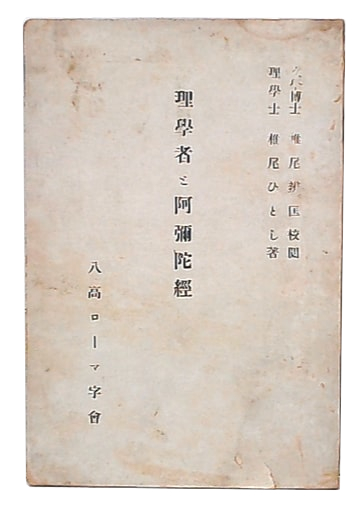 文學博士 椎尾辨匡校閲
理學士 椎尾ひとし著
理學者と阿彌陀經
八高ローマ字會